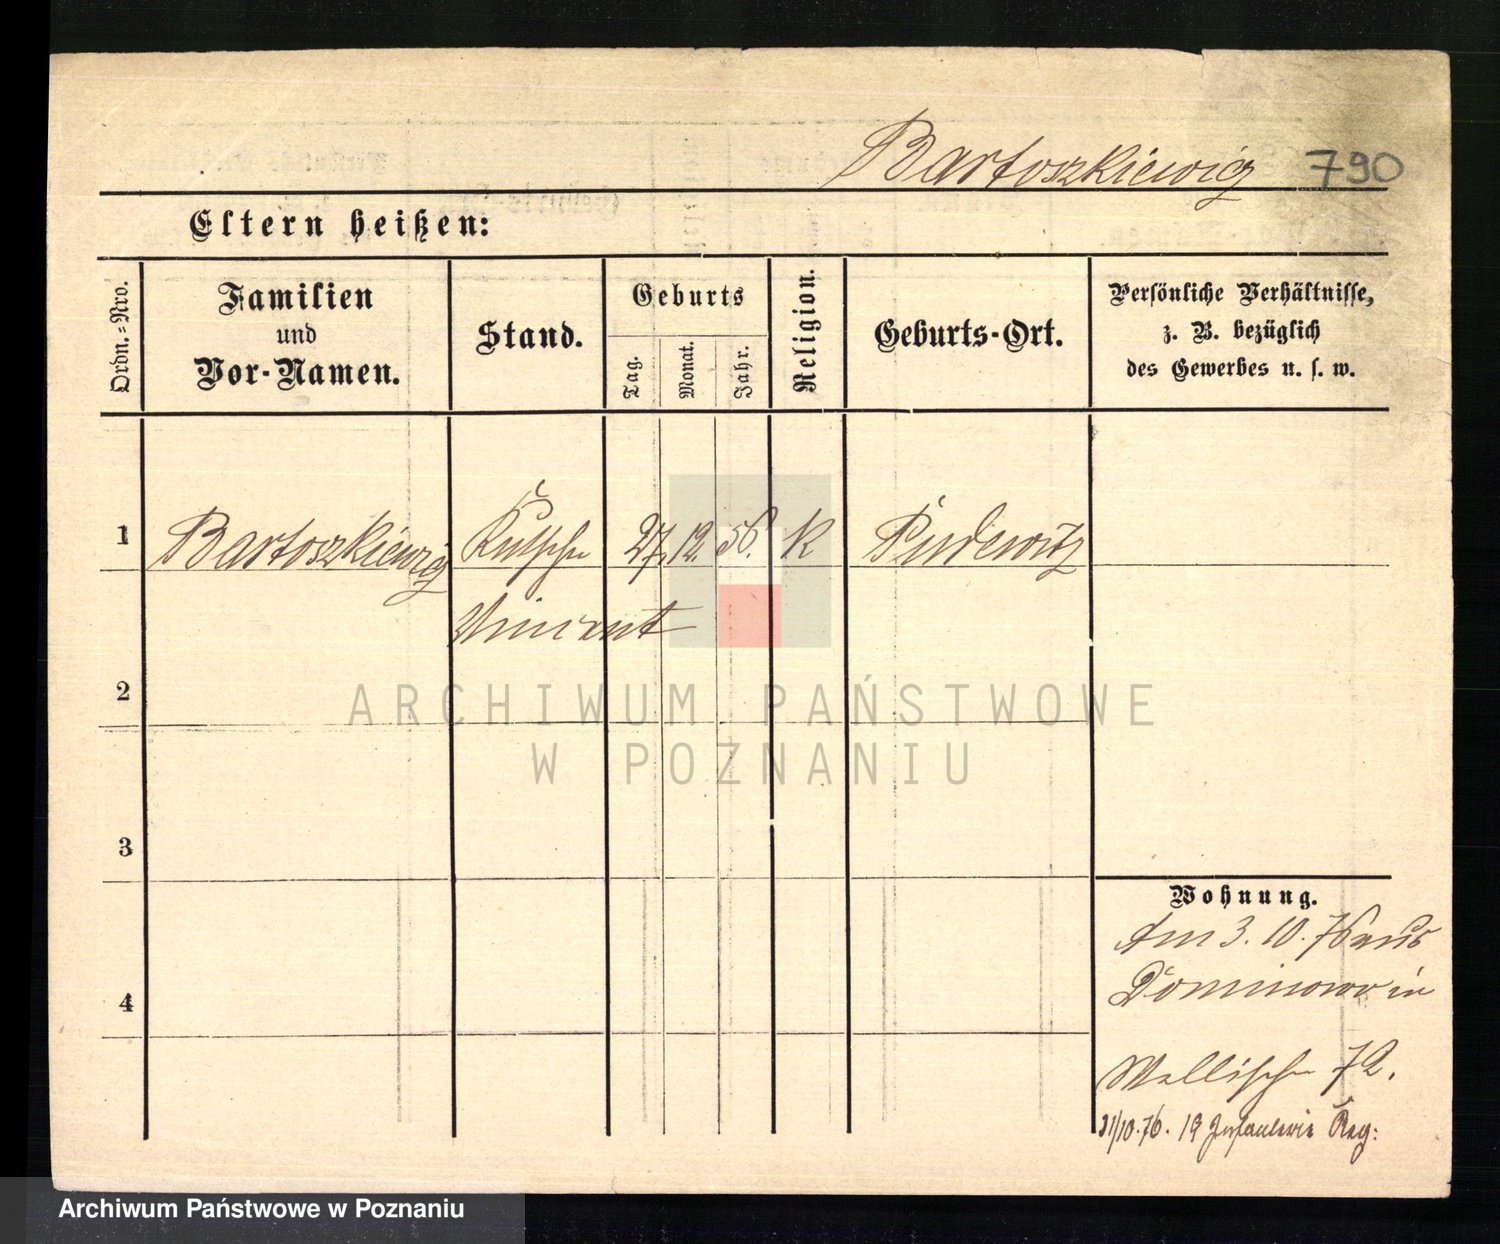 Bartoszkiewicz 790
Eltern heißen:
Ordn.=Nro.
Familien
und
Vor-Namen.
Stand.
Geburts
Tag.
Monat.
Jahr.
Religion.
Geburts-Ort.
Persönliche Verhältnisse,
z. B. bezüglich
des Gewerbes u. s. w.
1 Bartoszkiewicz 27. 12. 56. K Pudewitz
Vincent
2
3
4
Wohnung.
Am 3. 10. 76 aus
Dominowo in
Wallischei 72.
31/10.76. 19 Infanterie Reg:
ARCHIWUM PAŃSTWOWE
W POZNANIU
Archiwum Państwowe w Poznaniu